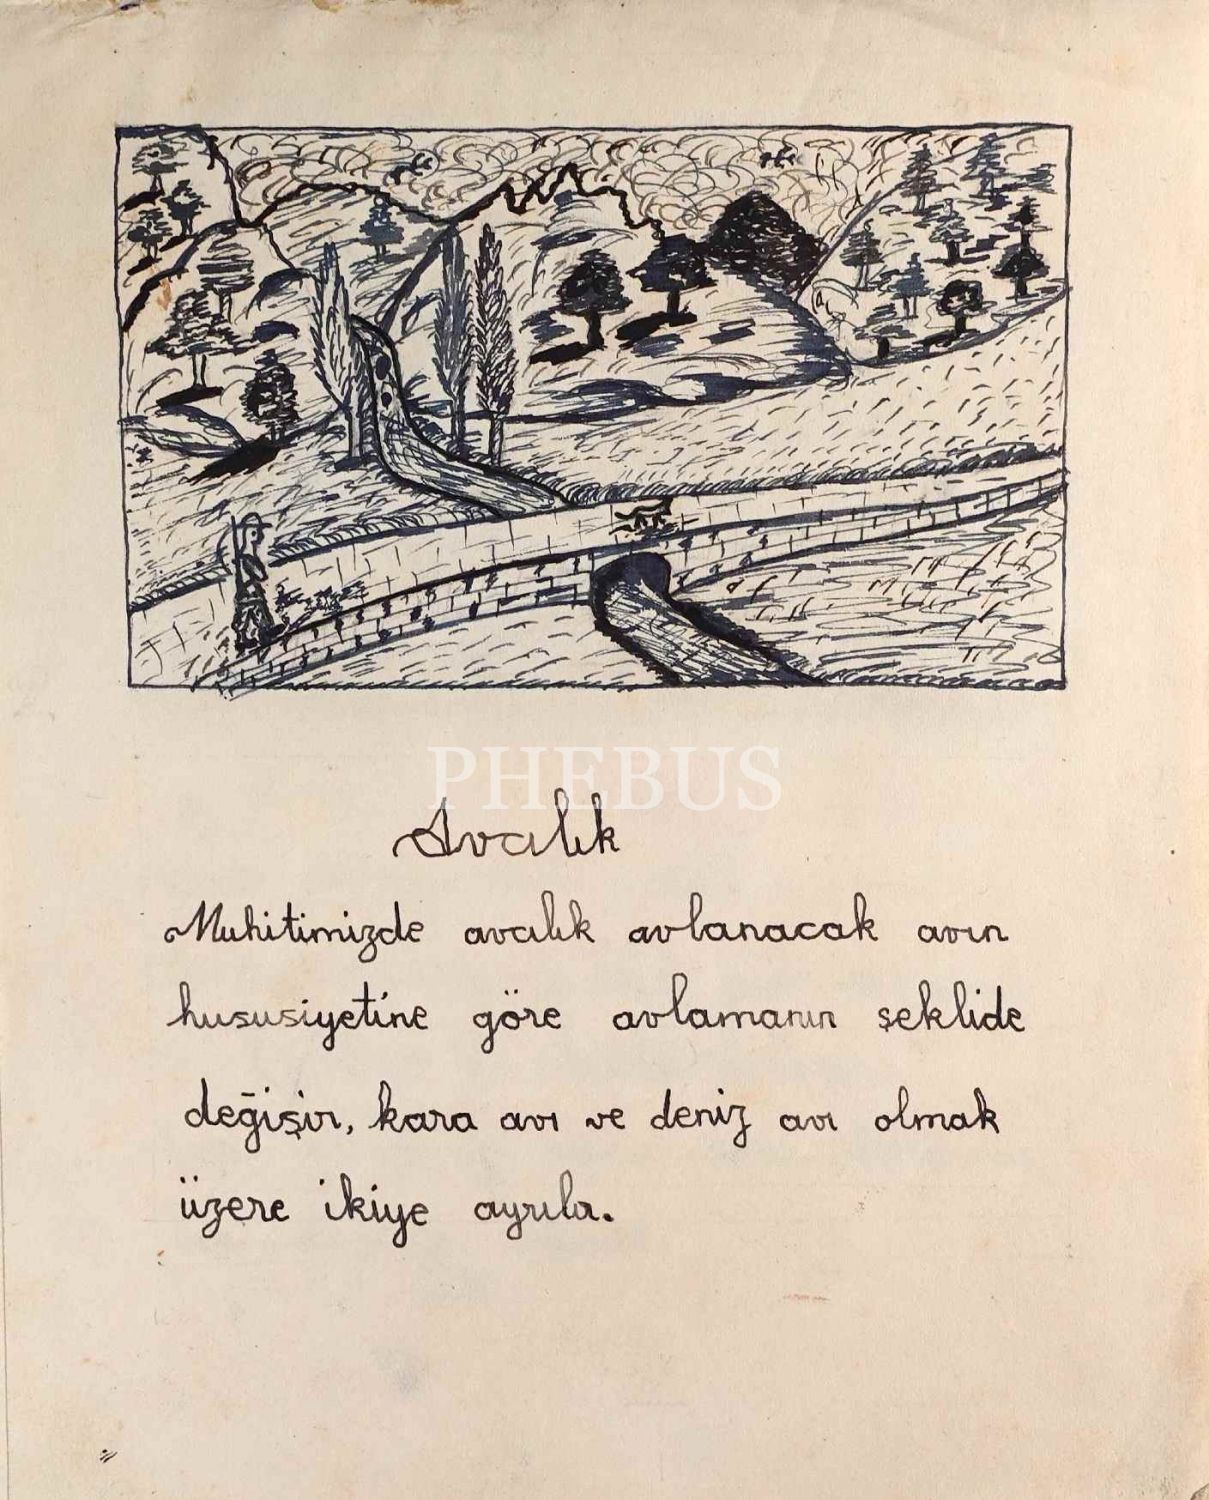 PHEBUS
Avcılık
Muhitimizde avcılık avlanacak avın
hususiyetine göre avlamanın şeklide
değişir, kara avı ve deniz avı olmak
üzere ikiye ayrılır.